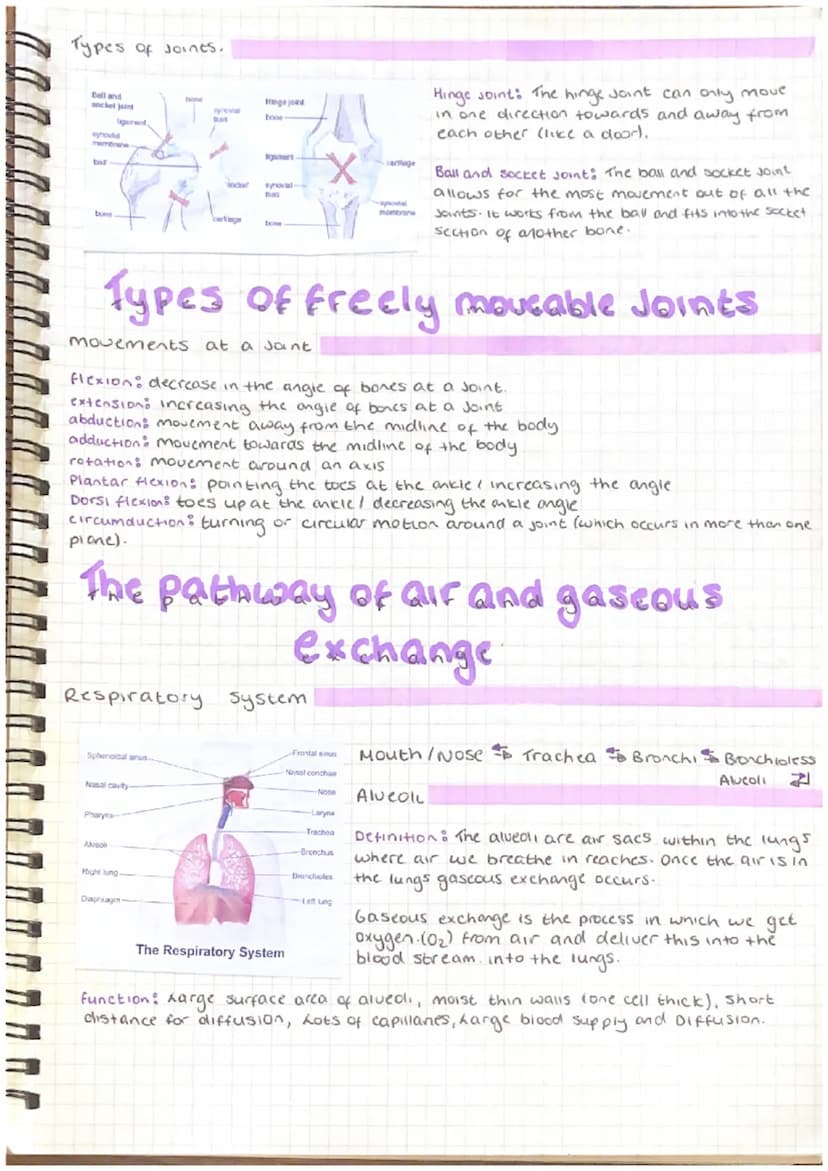 Types of Joints.
Ball and
socket joint
bone
synovial
fluid
ligament
synovial
membrane
ball
socket
bone
cartilage
Hinge joint
bone
ligament
cartilage
synovial
fluid
synovial
membrane
bone
Hinge joint: The hinge joint can only move
in one direction towards and away from
each other (like a door).
Ball and socket joint: The ball and socket joint
allows for the most movement out of all the
joints. It works from the ball and fits into the socket
section of another bone.
Types of freely moveable Joints
movements at a Joint
flexion: decrease in the angle of bones at a joint.
extension: increasing the angle of bones at a joint
abduction: movement away from the midline of the body
adduction: movement towards the midline of the body
rotation: movement around an axis
Plantar flexion: pointing the toes at the ankle / increasing the angle
Dorsi flexion: toes up at the ankle / decreasing the ankle angle
circumduction: turning or circular motion around a joint (which occurs in more than one
plane).
The pathway of air and gaseous
exchange
Respiratory System
Sphenoidal sinus
Frontal sinus
Nasal conchae
Nasal cavity
Nose
Pharynx
Larynx
Trachea
Alveoli
Bronchus
Right lung
Bronchioles
Diaphragm
Left lung
The Respiratory System
Mouth/Nose ⇆ Trachea ⇆ Bronchi ⇆ Bonchioless
Alveoli
Alveoli
Definition: The alveoli are air sacs within the lungs
where air we breathe in reaches. Once the air is in
the lungs gaseous exchange occurs.
Gaseous exchange is the process in which we get
oxygen.(O₂) from air and deliver this into the
blood stream. into the lungs.
function: Large surface area of alveoli, moist thin walls (one cell thick), short
distance for diffusion, Lots of capillaries, Large blood supply and Diffusion.